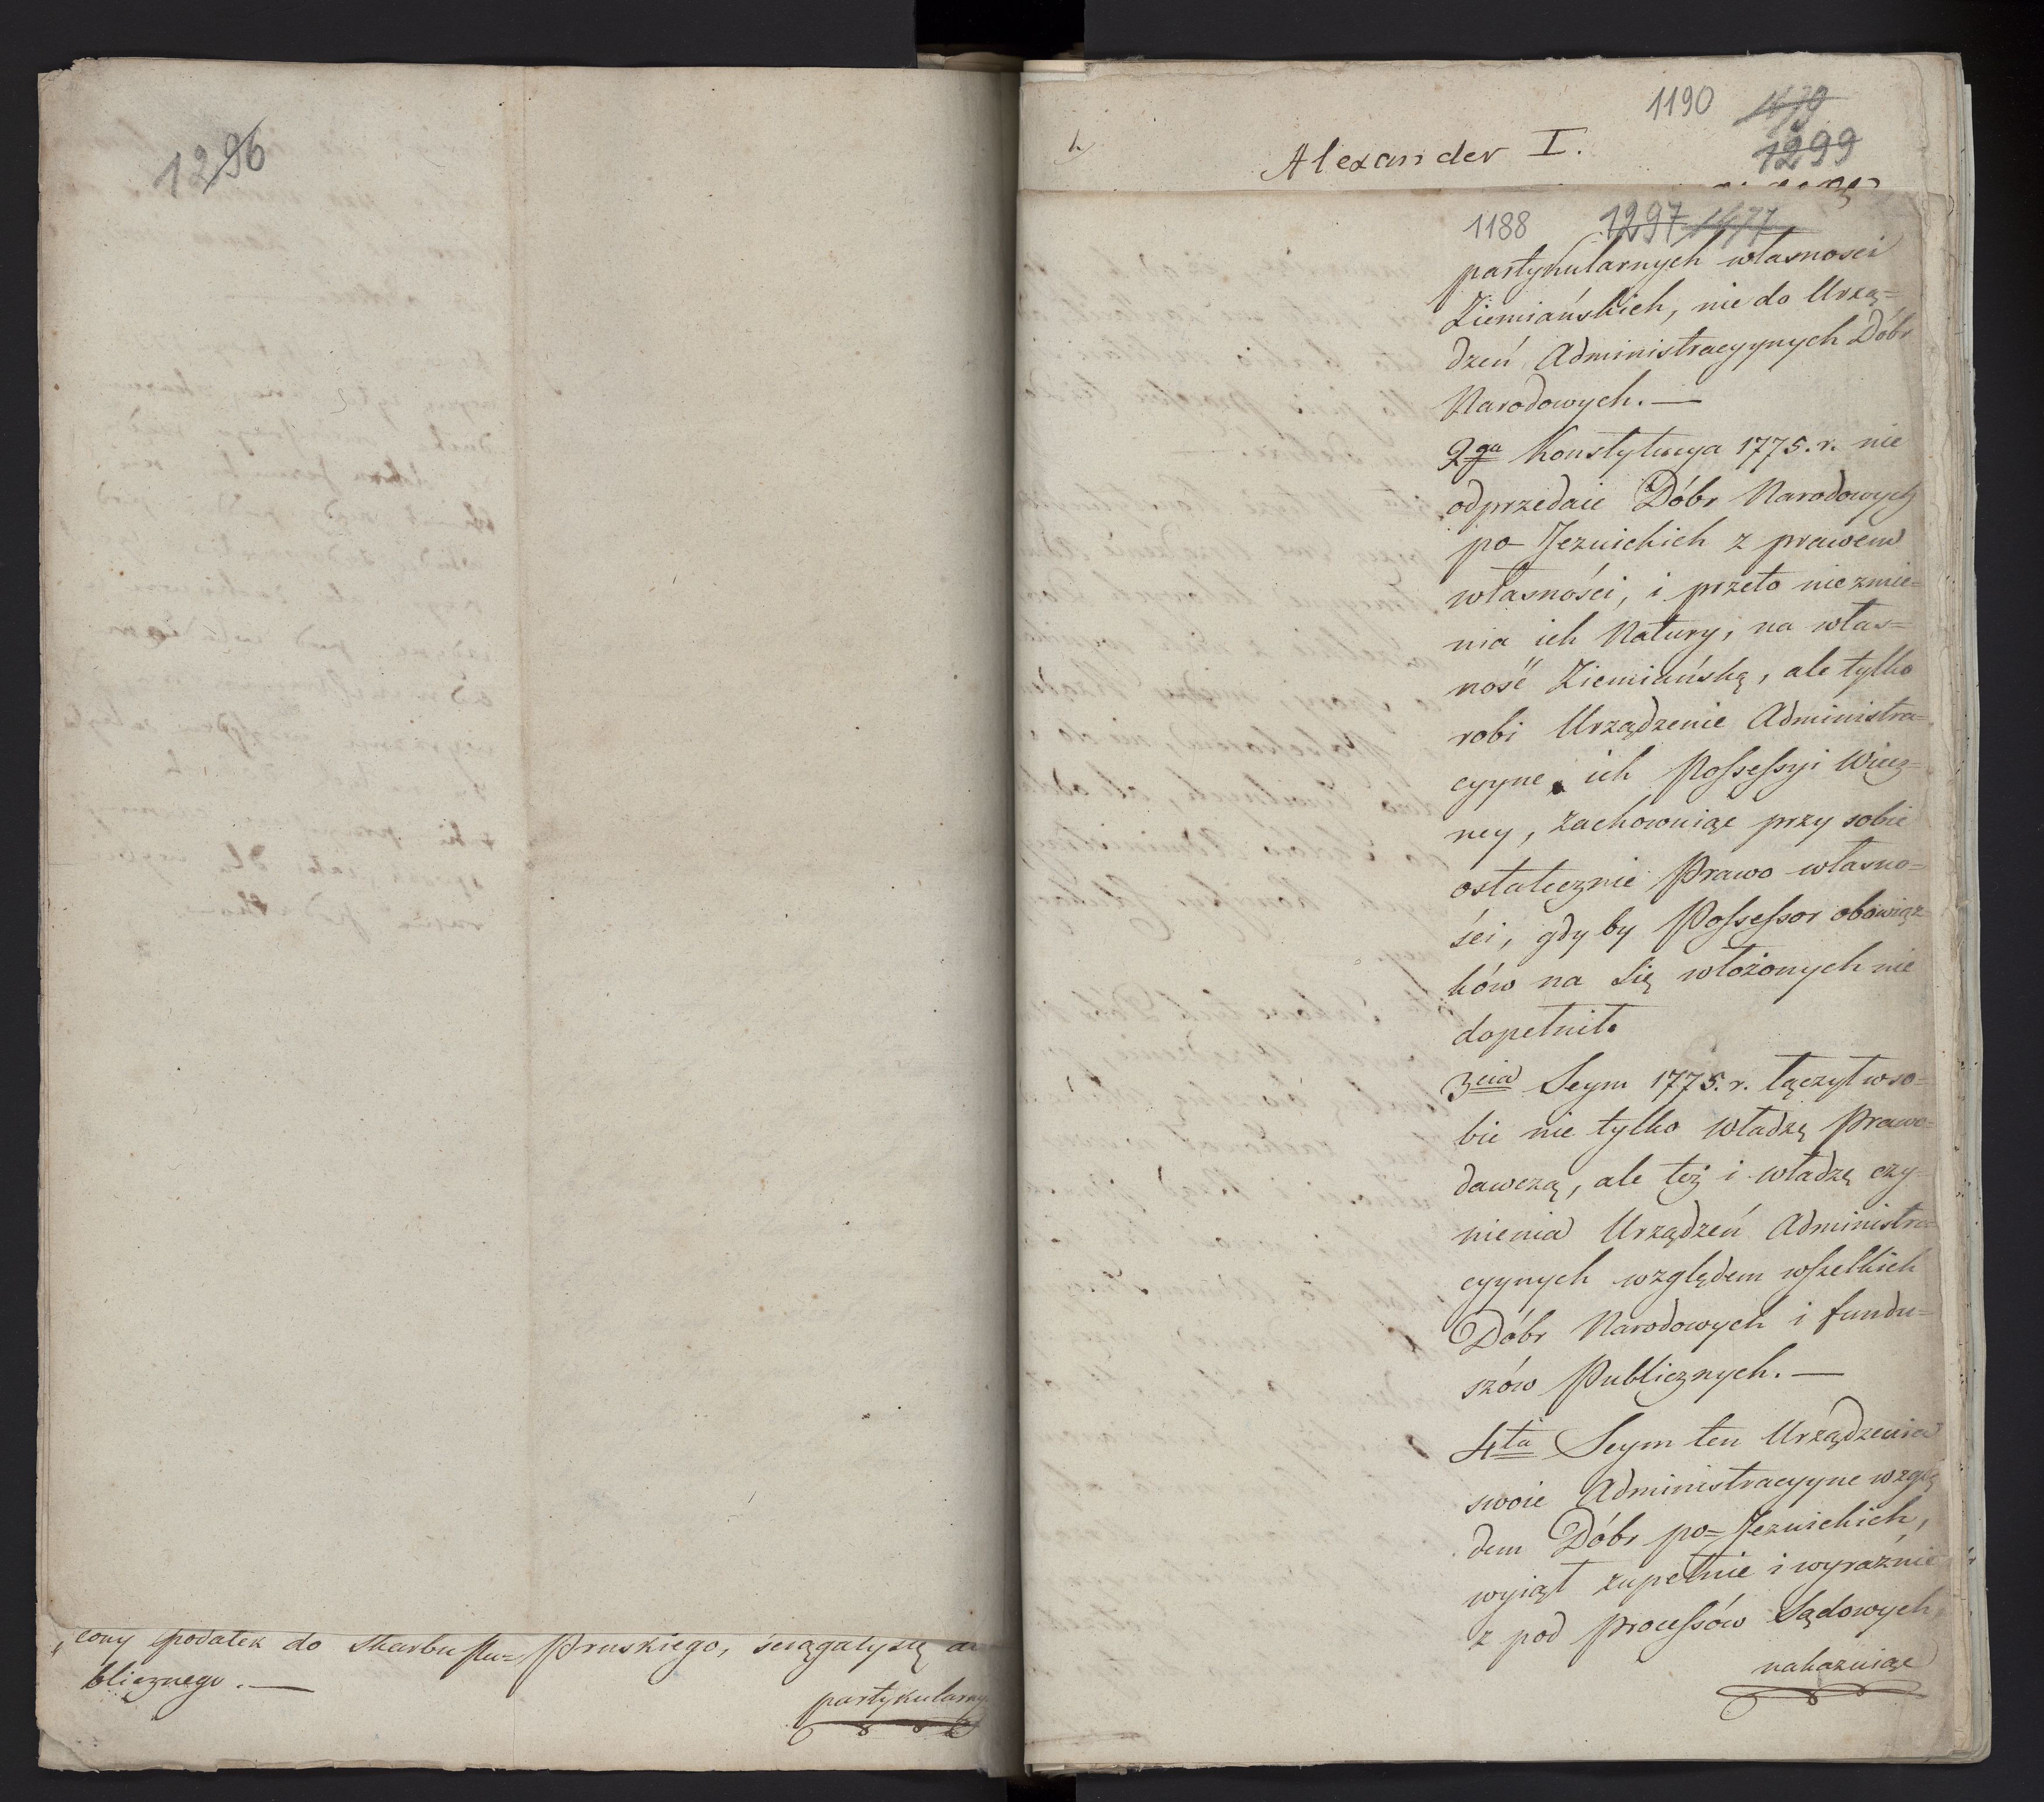 1296
cony podatek do Skarbu Pu= Pruskiego, ściągały się
blicznego. —
partykularny
1190 1479
Alexander I. 1299
1188 1297 1477
partykularnych własnosci
Ziemiańskich, nie do Urzą=
dzeń Administracyynych Dóbr
Narodowych. —
2ga Konstytucya 1775. r. nie
odprzedaie Dóbr Narodowych
po-Jezuickich z prawem
własności, i przeto niezmie=
nia ich Natury, na włas=
ność Ziemiańską, ale tylko
robi Urządzenie Administra=
cyyne ich Possessyi Wiecz=
ney, zachowuiąc przy sobie
ostatecznie Prawo własno=
ści, gdyby Possessor obowiąz=
ków na się włożonych nie
dopełnił.
3cia Seym 1775. r. łączył w so=
bie nie tylko władzę Prawo=
dawczą, ale też i władzę czy=
nienia Urządzeń Administra=
cyynych względem wszelkich
Dóbr Narodowych i fundu=
szów Publicznych. —
4ta Seym ten Urządzenia
swoie Administracyyne wzglę
dem Dóbr po=Jezuickich,
wyiął zupełnie i wyraźnie
z pod Processów Sądowych,
nakazuiąc